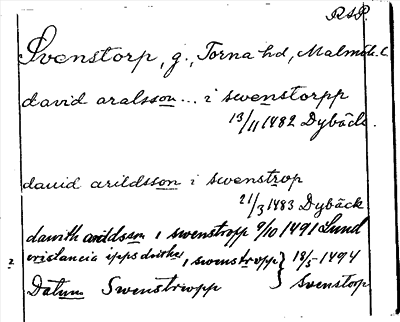 RAP.
Svenstorp, g., Torna hd, Malmöh. l.
david aralsson... i swenstorpp
13/11 1482 Dybäck.
dauid arildsson i swenstrop
21/3 1483 Dybäck
dawith arildsson i swenstropp 9/10 1491 Lund
cristancia ipps dotter, swenstropp } 18/5 1494
Datum Swenstrwpp Svenstorp
2